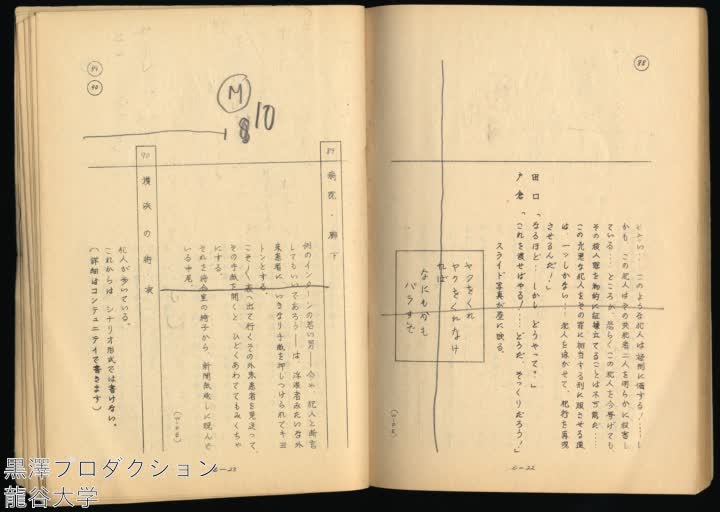 88
じない……このような犯人は極刑に値する!……し
かも、この犯人はその共犯者二人を明らかに殺害し
ている……ところが、恐らくこの犯人を今挙げても
その殺人罪を物的に証拠立てることは不可能だ……
この兇悪な犯人をその罪に相当する刑に服させる道
は、一つしかない!……犯人を泳がせて、犯行を再現
させるんだ!」
田口「なるほど……しかし、どうやって?」
戸倉「これを渡せばやる!……どうだ、そっくりだろう!」
スライド写真が壁に映る。
ヤクをくれ
ヤクをくれなけ
れば
なにもかも
バラすぞ
(WIPE)
C-22
89
90
M
8 10
89 病院・廊下
例のインターンの若い男——今や、犯人と断言
してもいいであろう——は、浮浪者みたいな外
来患者に、いきなり手紙を押しつけられてキョ
トンとする。
こそこそ表へ出て行くその外来患者を見送って、
その手紙を開くと、ひどくあわててもみくちゃ
にする。
それを待合室の椅子から、新聞紙越しに睨んで
いる中尾。
(WIPE)
90 横浜の街・夜
犯人が歩いている。
これからは、シナリオ形式では書けない。
(詳細はコンテュニティで書きます)
C-23
黒澤プロダクション
龍谷大学